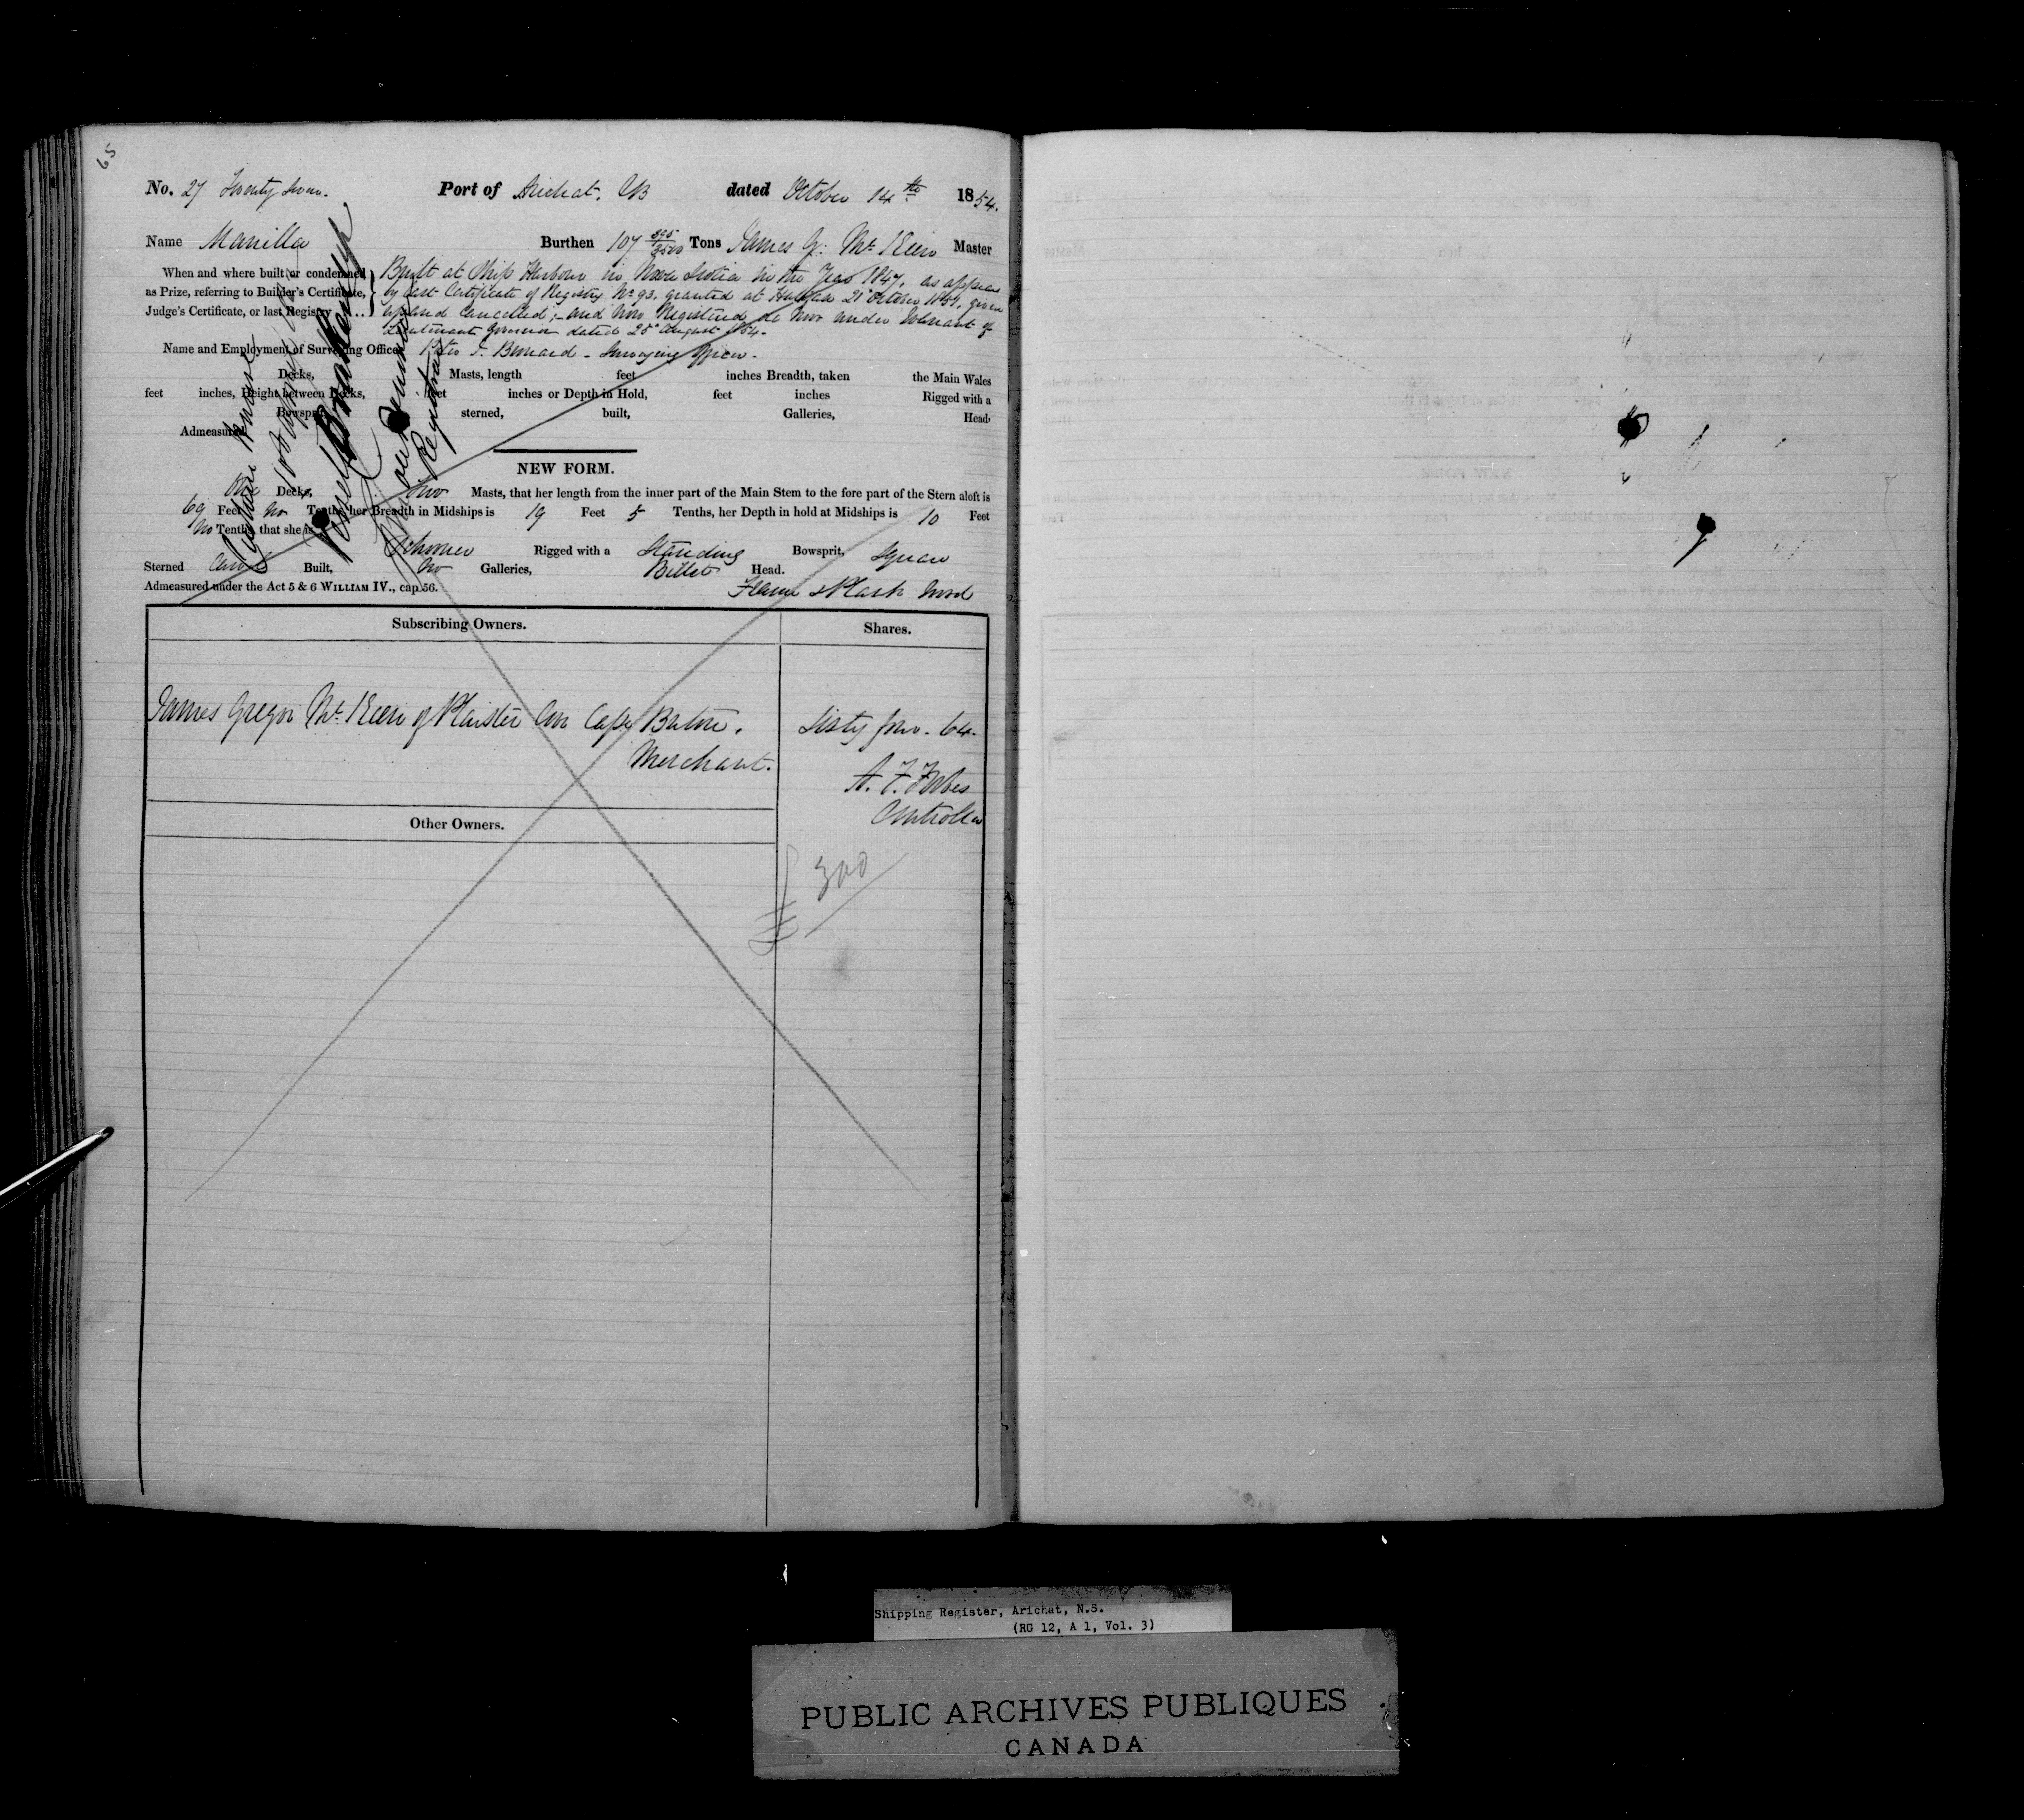 65
No. 27 Twenty seven. Port of Arichat. CB dated October 14th 1854.
Name Manilla Burthen 107 895/3500 Tons James G: McKeen Master
When and where built, or condemned as Prize, referring to Builder's Certificate, Judge's Certificate, or last Registry
Built at Ship Harbour in Nova Scotia in the Year 1847, as appears
by last Certificate of Registry No 93. granted at Halifax 21st October 1851, given
up and Cancelled; and now Registered de Novo under Warrant of
Lieutenant Governor dated 28th August 1854.
Name and Employment of Surveying Officer Peter F. Bernard - Surveying Officer.
Decks, Masts, length feet inches Breadth, taken the Main Wales
feet inches, Height between Decks, feet inches or Depth in Hold, feet inches Rigged with a
Bowsprit, sterned, built, Galleries, Head,
Admeasured
Vessel
Registrar
NEW FORM.
One Decks, Two Masts, that her length from the inner part of the Main Stem to the fore part of the Stern aloft is
69 Feet no Tenths, her Breadth in Midships is 19 Feet 5 Tenths, her Depth in hold at Midships is 10 Feet
no Tenths, that she is Schooner Rigged with a Standing Bowsprit, Square
Sterned Carvel Built, No Galleries, Billet Head.
Admeasured under the Act 5 & 6 WILLIAM IV., cap. 56. Frame & Plank Wood
Subscribing Owners. Shares.
James Gregor McKeen of Plaister Cove Cape Breton, Sixty four. 64.
Merchant.
A. F. Forbes
Controller
Other Owners.
300
Shipping Register, Arichat, N.S.
(RG 12, A 1, Vol. 3)
PUBLIC ARCHIVES PUBLIQUES
CANADA